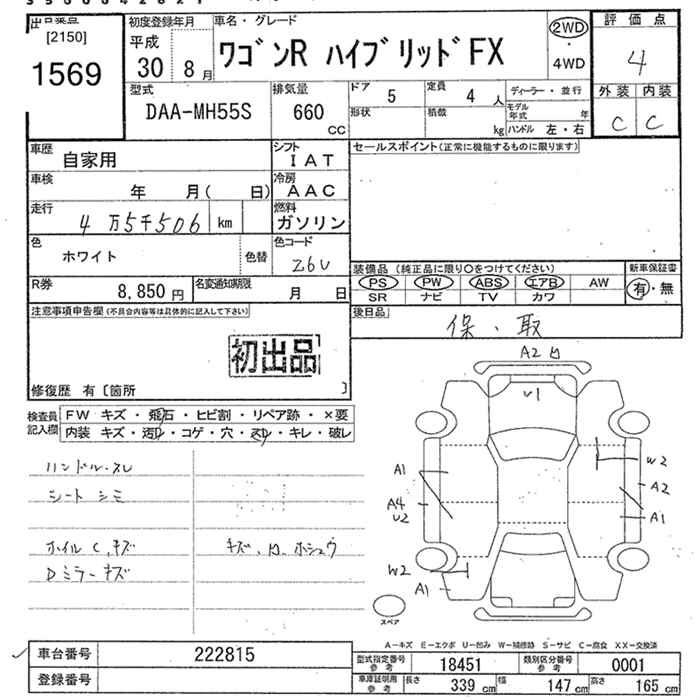 出品番号
[2150]
1569
初度登録年月
平成
30 8月
車名・グレード
ワゴンR ハイブリッドFX
2WD
・
4WD
評価点
4
外装 内装
C C
型式
DAA-MH55S
排気量
660
CC
ドア 5
定員 4人
形状
積載 kg
ディーラー・並行
モデル年式 年
ハンドル 左・右
車歴 自家用
シフト IAT
セールスポイント(正常に機能するものに限ります)
車検 年 月( 日)
冷房 AAC
走行 4万5千506 km
燃料 ガソリン
色 ホワイト
色替
色コード Z6U
装備品(純正品に限り〇をつけてください)
新車保証書
PS PW ABS エアB AW
有・無
SR ナビ TV カワ
R券 8,850円
名変通知期限 月 日
後日品
保、取
注意事項申告欄(不具合内容等は具体的に記入して下さい)
初出品
修復歴 有〔箇所 〕
検査員記入欄
FW キズ・飛石・ヒビ割・リペア跡・×要
内装 キズ・汚れ・コゲ・穴・スレ・キレ・破レ
ハンドル、スレ
シート シミ
ホイルC、キズ
キズ、凹、ホシュウ
Dミラーキズ
A2 凹
U1
A1
W2
A2
A4
U2
A1
W2
A1
スペア
A-キズ E-エクボ U-凹み W-補修跡 S-サビ C-腐食 XX-交換済
車台番号 222815
型式指定番号 参考 18451
類別区分番号 参考 0001
登録番号
車庫証明用 参考
長さ 339cm
幅 147cm
高さ 165cm